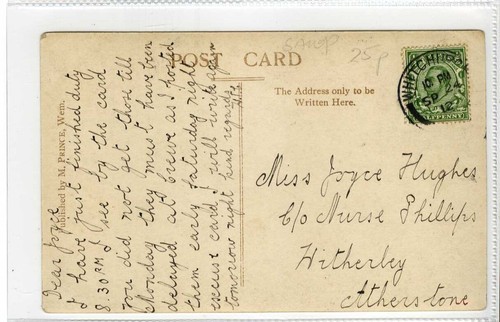 POST CARD
The Address only to be
Written Here.
Published by M. PRINCE, Wem.
25p
WHITCHURCH
SP 24
12
Dear Joyce
I have just finished duty
8.30 PM I see by the card
you did not get those till
Monday they must have been
delayed at as I posted
them early Saturday night
excuse card I will write again
tomorrow night kind regards
Miss Joyce Hughes
C/o Nurse Phillips
Witherley
Atherstone